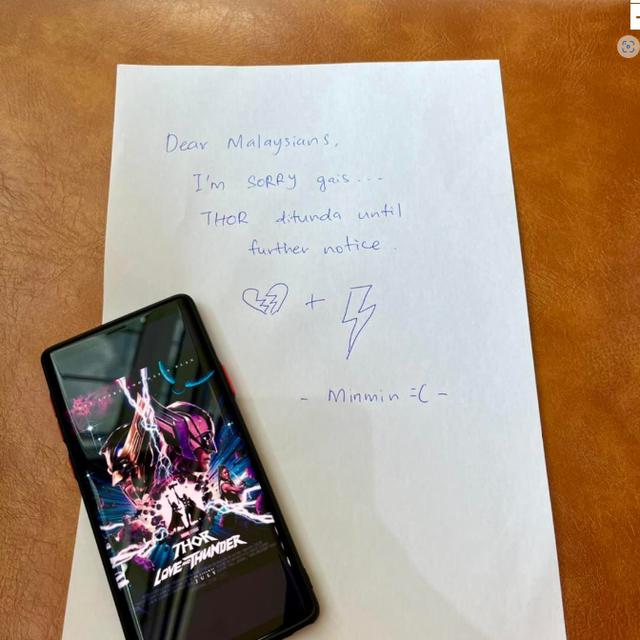 Dear Malaysians,
I'm SORRY gais...
THOR ditunda until
further notice.
+
- Minmin =( -
THOR
LOVE AND THUNDER
JULY